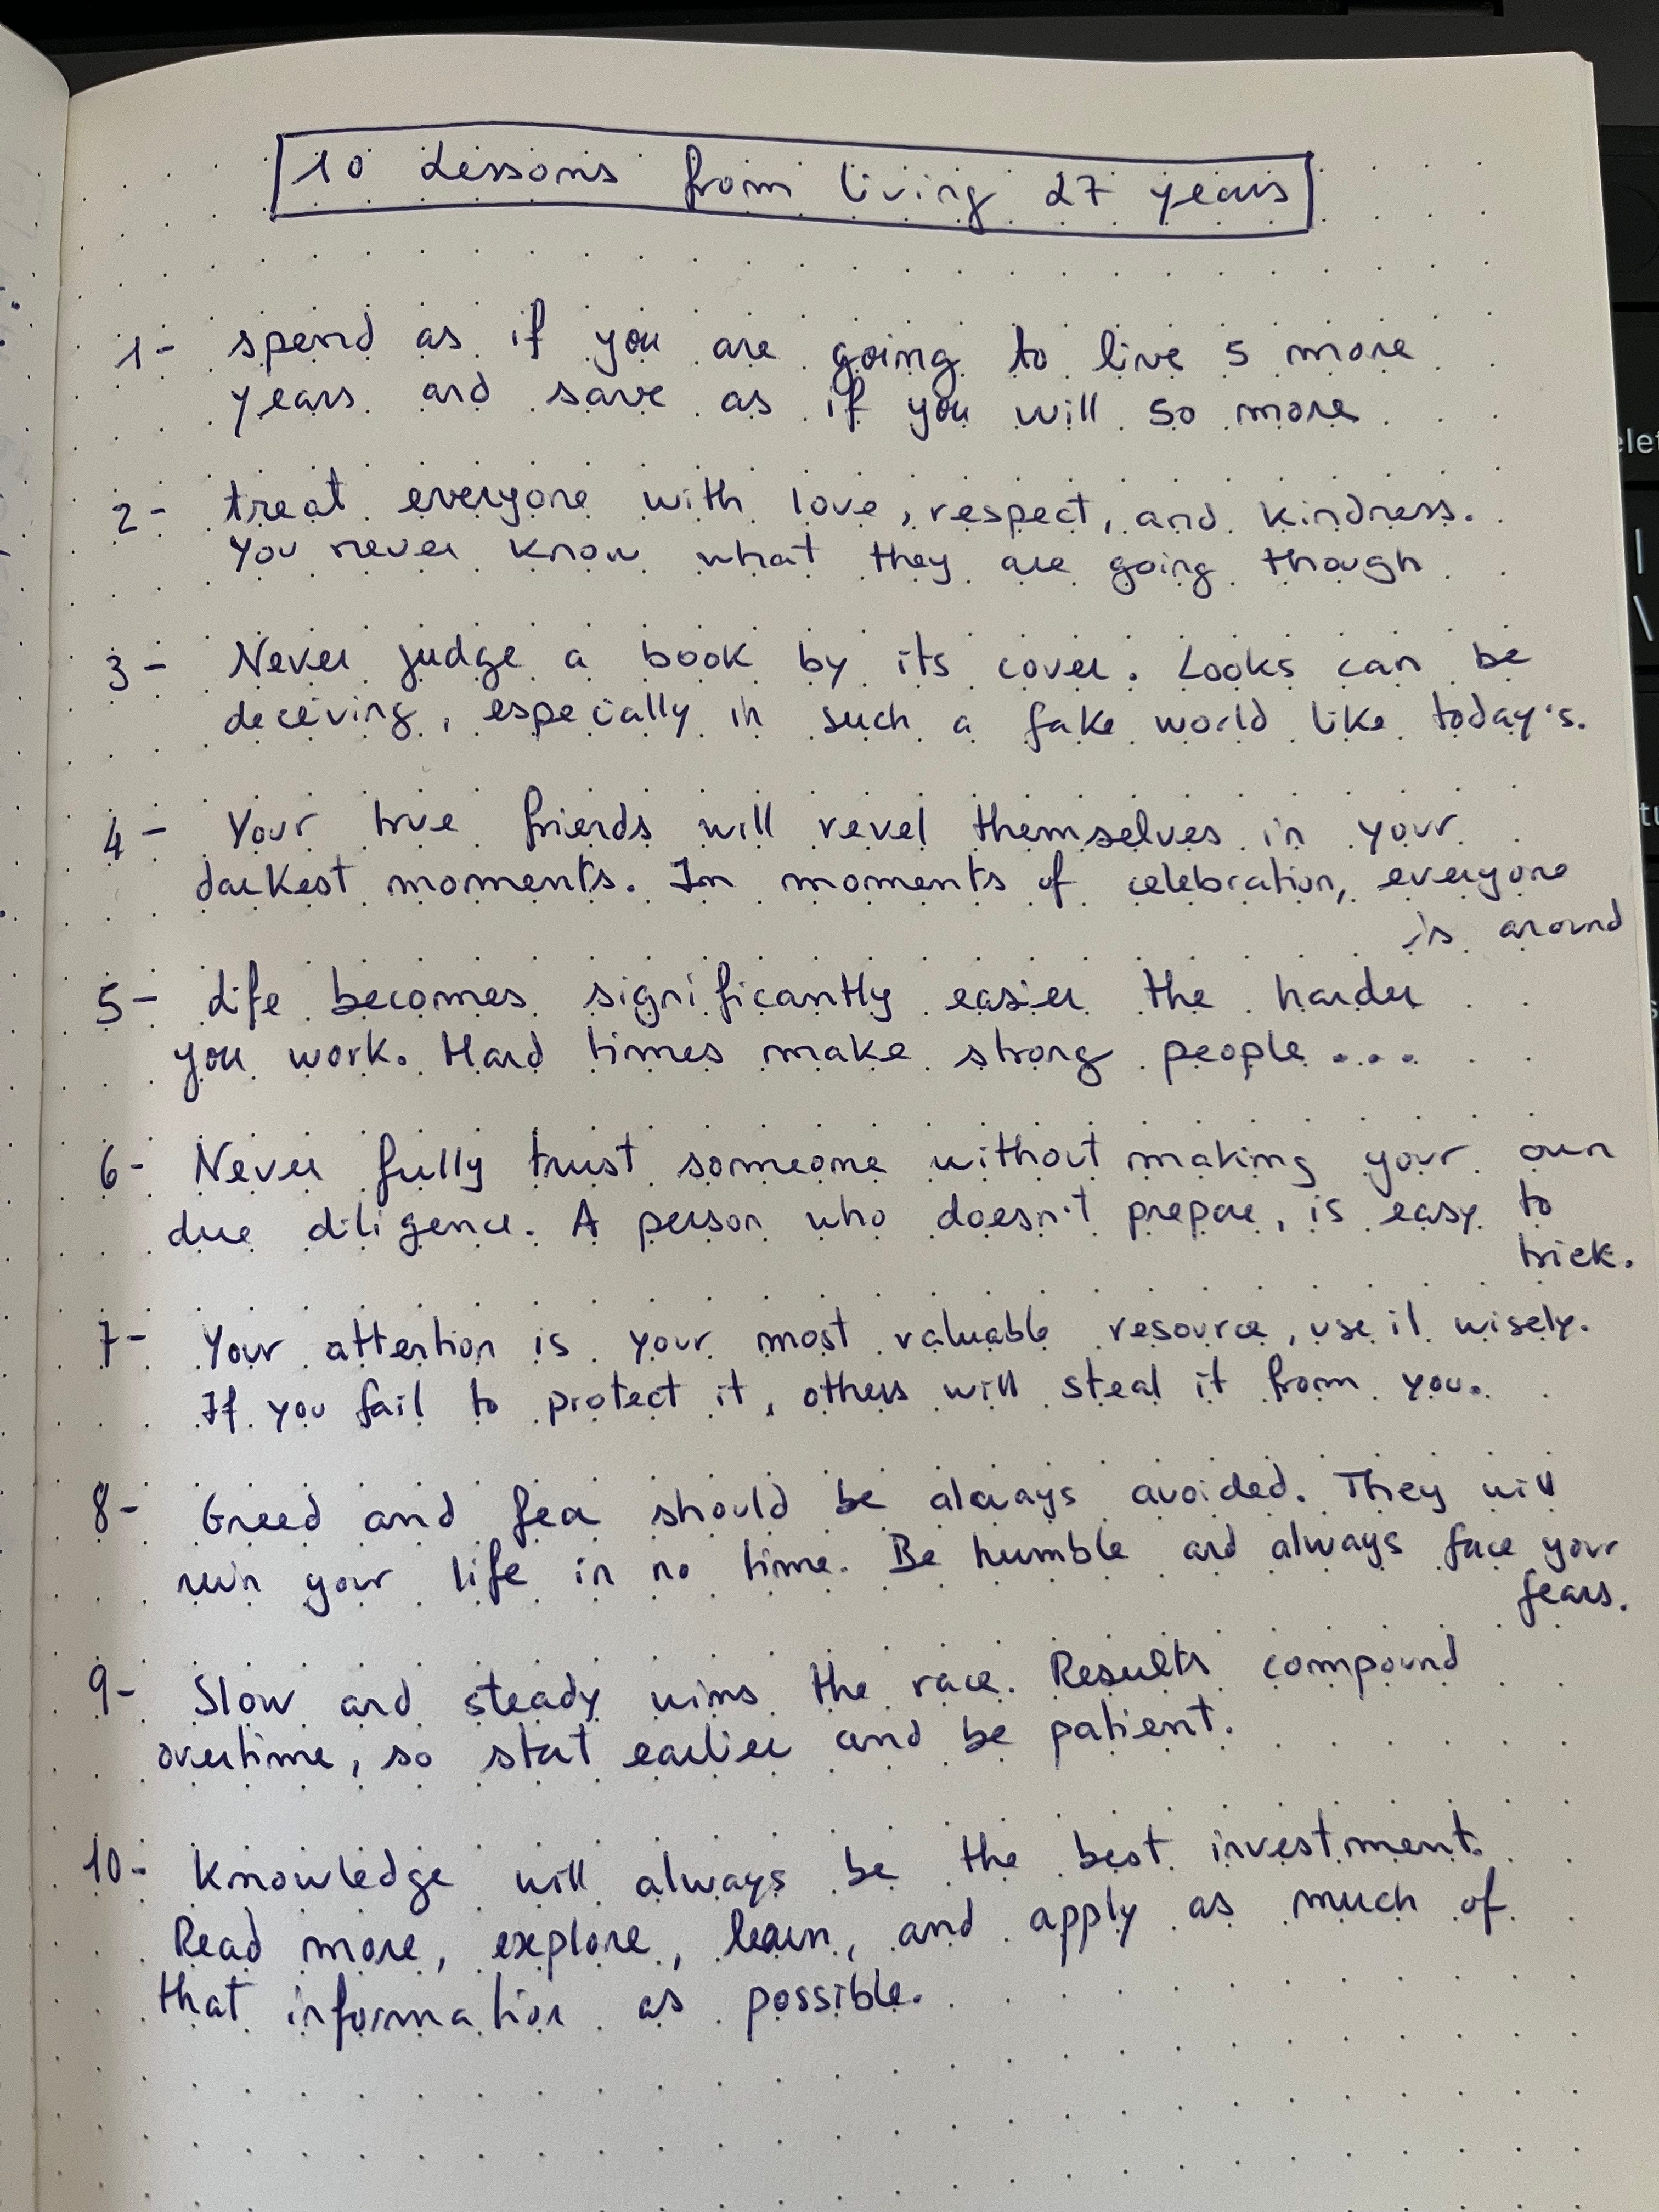 10 Lessons from living 27 years
1- spend as if you are going to live 5 more
years and save as if you will 50 more
2- treat everyone with love, respect, and kindness.
You never know what they are going though
3- Never judge a book by its cover. Looks can be
deceiving, especially in such a fake world like today's.
4- Your true friends will revel themselves in your
darkest moments. In moments of celebration, everyone
is around
5- Life becomes significantly easier the harder
you work. Hard times make strong people....
6- Never fully trust someone without making your own
due diligence. A person who doesn't prepare, is easy to
trick.
7- Your attention is your most valuable resource, use it wisely.
If you fail to protect it, others will steal it from you.
8- Greed and fear should be always avoided. They will
ruin your life in no time. Be humble and always face your
fears.
9- Slow and steady wins the race. Results compound
overtime, so start earlier and be patient.
10- Knowledge will always be the best investment.
Read more, explore, learn, and apply as much of
that information as possible.